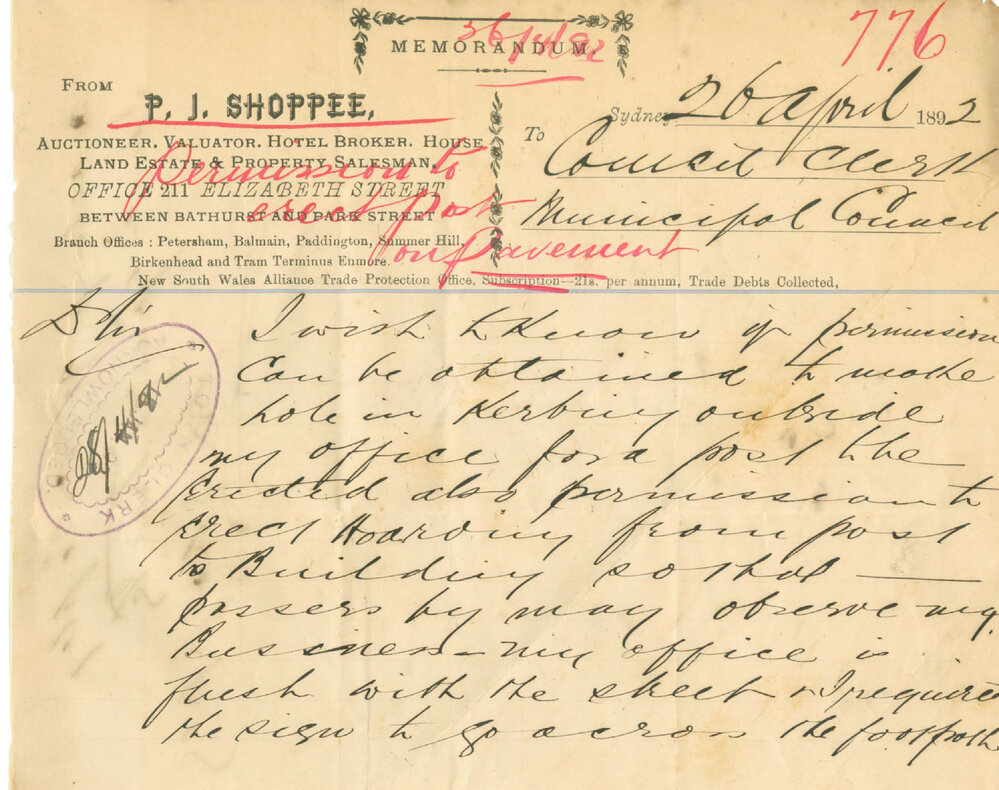 776
26/4/92
MEMORANDUM.
FROM
P. J. SHOPPEE,
AUCTIONEER, VALUATOR, HOTEL BROKER, HOUSE
LAND ESTATE & PROPERTY SALESMAN.
OFFICE 211 ELIZABETH STREET
BETWEEN BATHURST AND PARK STREET
Branch Offices : Petersham, Balmain, Paddington, Summer Hill,
Birkenhead and Tram Terminus Enmore.
New South Wales Alliance Trade Protection Office, Subscription—21s. per annum, Trade Debts Collected,
Permission to
erect post
on pavement
Sydney 26 April 1892
To
Council Clerk
Municipal Council
D Sir I wish to know if permission
Can be obtained to make
hole in Kerbing outside
my office for a post to be
Erected also permission to
Erect Hoarding from post
to Building so that
passers by may observe my
Business – my office is
flush with the street & I require
the sign to go across the footpath
TOWN CLERK
ACKNOWLEDGED.